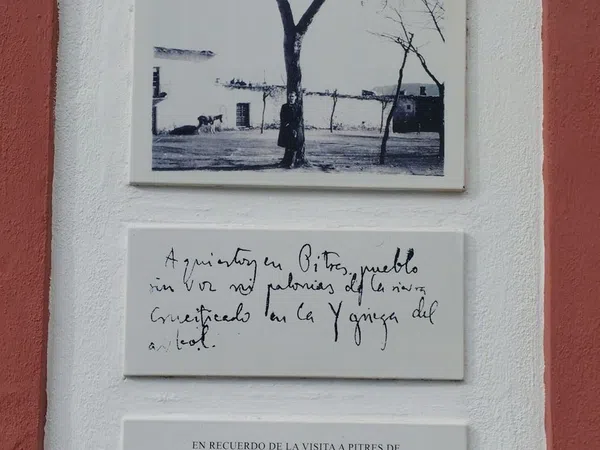 Aquí estoy en Pitres, pueblo
sin voz ni palomas de la sierra
crucificado en la Y griega del
árbol.
EN RECUERDO DE LA VISITA A PITRES DE